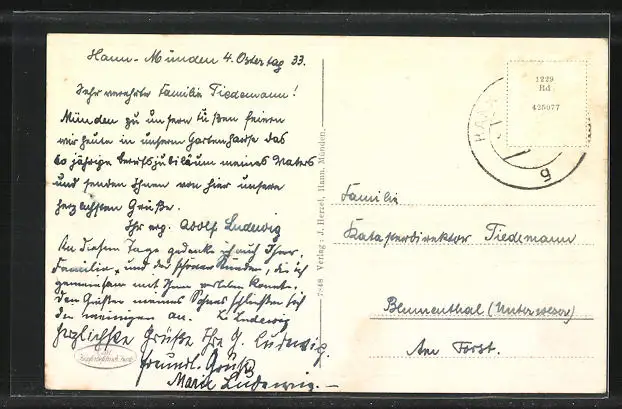 Hann.-Münden 4. Ostertag 33.
Sehr verehrte Familie Tiedemann!
Münden zu unsern Füßen feiern
wir heute in unserm Gartenhause das
60 jährige Berufsjubiläum meines Vaters
und senden Ihnen von hier unsere
herzlichsten Grüße.
Ihr erg. Adolf Ludwig
An diesem Tage gedenke ich auch Ihrer
Familie, und der schönen Stunden, die ich
gemeinsam mit Ihnen verleben konnte.
Den Grüßen meines Sohnes schließen sich
die meinigen an. Ludewig
herzlichste Grüße Ihre G. Ludewig.
freundl. Gruß
Marie Ludewig.
7848 Verlag: J. Herzel, Hann. Münden.
1229
Rd
425077
HANN
5
Familie
Katasterdirektor Tiedemann
Blumenthal (Unterweser)
Am Forst.